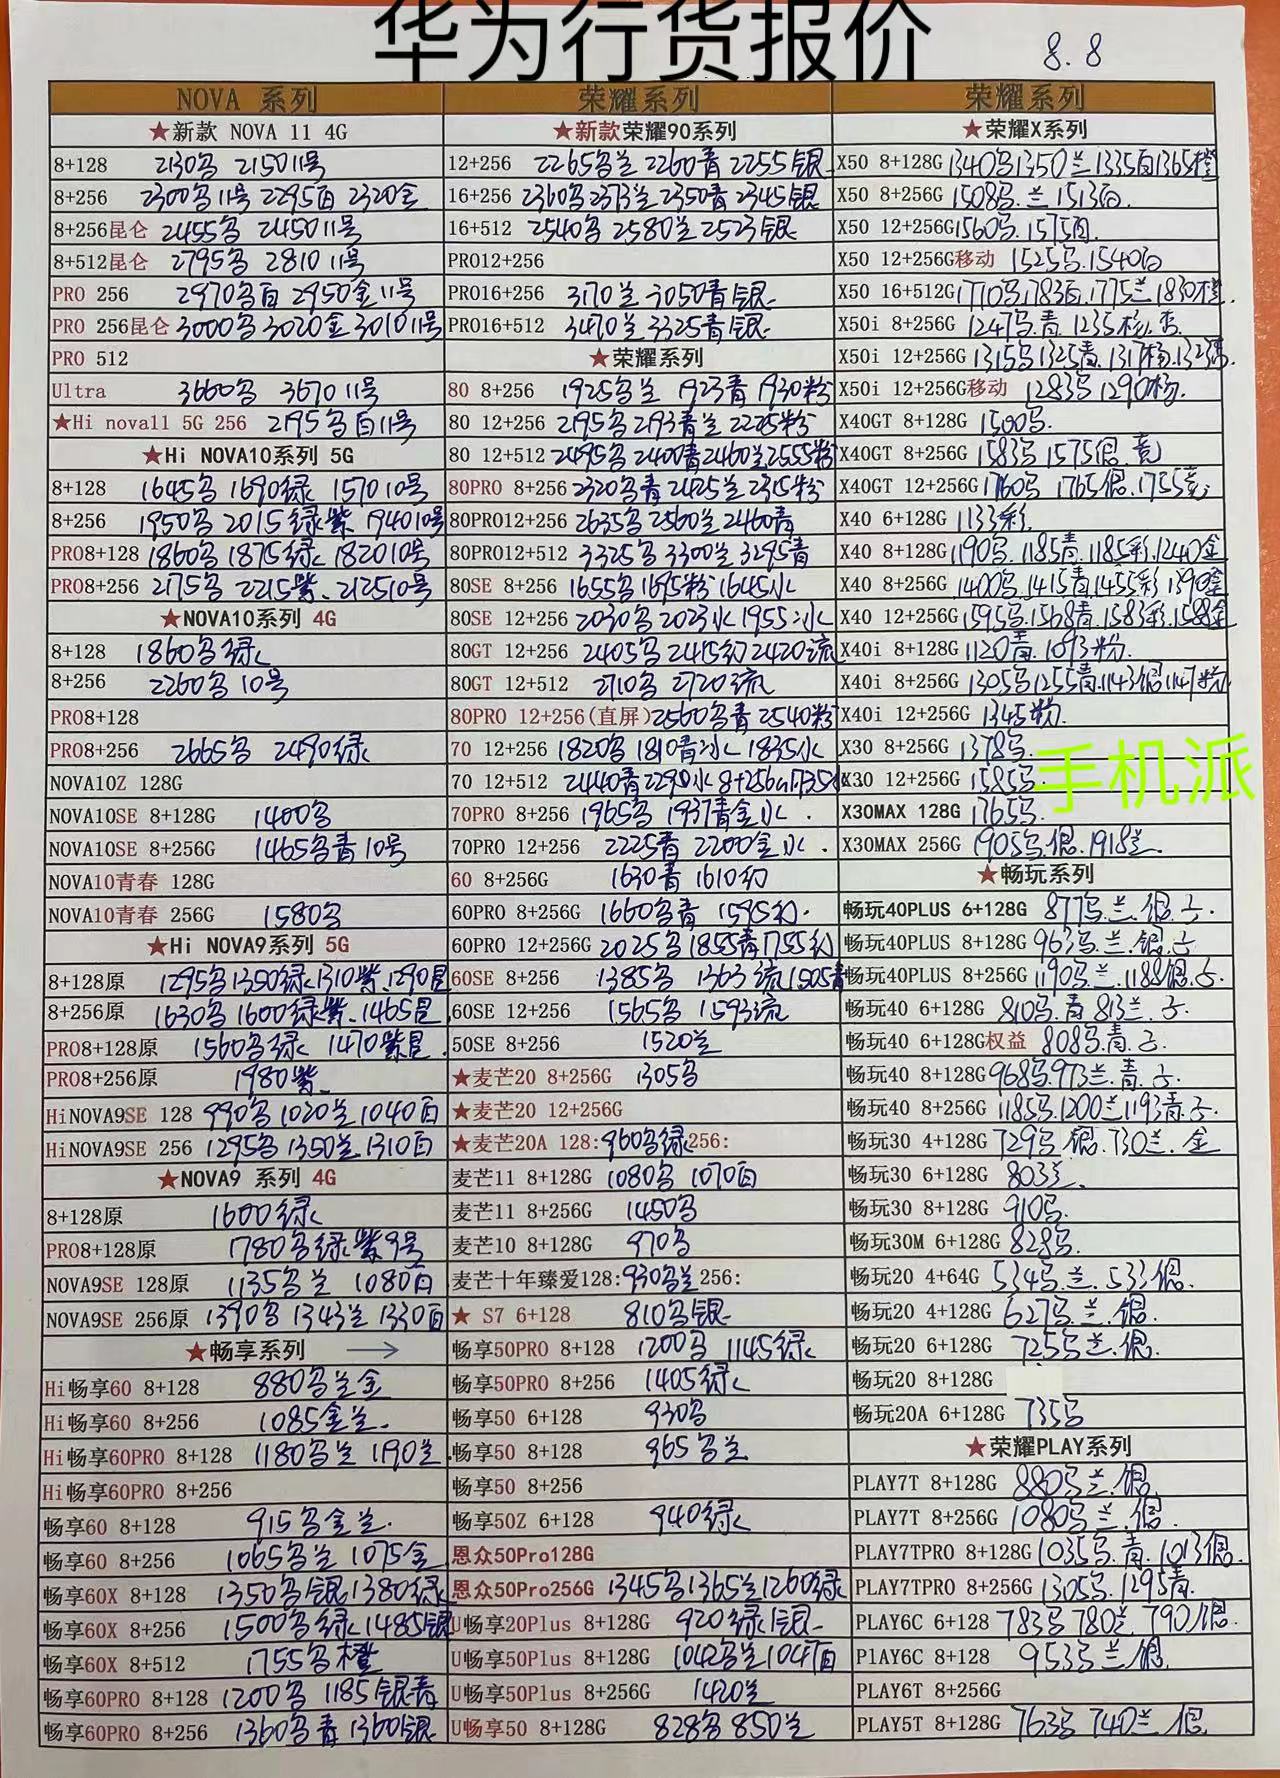 华为行货报价
8.8
NOVA 系列
★新款 NOVA 11 4G
8+128 2130 2150 11号
8+256 2300 11号 2295白 2320金
8+256昆仑 2455 2450 11号
8+512昆仑 2795 2810 11号
PRO 256 2970 白 2950金 11号
PRO 256昆仑 3000 3020金 3010 11号
PRO 512
Ultra 3660 3670 11号
★Hi nova11 5G 256 2195 白 11号
★Hi NOVA10系列 5G
8+128 1645 1690绿 1570 10号
8+256 1950 2015绿紫 1940 10号
PRO8+128 1860 1875绿 1820 10号
PRO8+256 2175 2215紫 2125 10号
★NOVA10系列 4G
8+128 1860 绿
8+256 2260 10号
PRO8+128
PRO8+256 2665 2490绿
NOVA10Z 128G
NOVA10SE 8+128G 1400
NOVA10SE 8+256G 1465 青 10号
NOVA10青春 128G
NOVA10青春 256G 1580
★Hi NOVA9系列 5G
8+128原 1295 1350绿 1310紫 1290
8+256原 1630 1600绿紫 1465
PRO8+128原 1560 绿 1470紫
PRO8+256原 1980紫
HiNOVA9SE 128 990 1020兰 1040白
HiNOVA9SE 256 1295 1350兰 1310白
★NOVA9 系列 4G
8+128原 1600绿
PRO8+128原 1780 绿紫9号
NOVA9SE 128原 1135 兰 1080白
NOVA9SE 256原 1390 1343兰 1330白
★畅享系列 →
Hi畅享60 8+128 880 兰金
Hi畅享60 8+256 1085金兰
Hi畅享60PRO 8+128 1180 兰 1190兰
Hi畅享60PRO 8+256
畅享60 8+128 915 金兰
畅享60 8+256 1065 兰 1075金
畅享60X 8+128 1350 银 1380绿
畅享60X 8+256 1500 绿 1485银
畅享60X 8+512 1755 橙
畅享60PRO 8+128 1200 1185银青
畅享60PRO 8+256 1360 青 1360银
荣耀系列
★新款荣耀90系列
12+256 2265 兰 2260青 2255银
16+256 2360 2373兰 2350青 2345银
16+512 2540 2580兰 2523银
PRO12+256
PRO16+256 3170兰 3050青银
PRO16+512 3470兰 3325青银
★荣耀系列
80 8+256 1925 兰 1923青 1930粉
80 12+256 2195 2193青兰 2225粉
80 12+512 2495 2400青 2460兰 2555粉
80PRO 8+256 2320 青 2425兰 2315粉
80PRO12+256 2635 2560兰 2460青
80PRO12+512 3325 3300兰 3295青
80SE 8+256 1655 1695粉 1645冰
80SE 12+256 2030 2023冰 1955冰
80GT 12+256 2405 2415幻 2420流
80GT 12+512 2710 2720流
80PRO 12+256(直屏) 2560 青 2540粉
70 12+256 1820 1810青冰 1835冰
70 12+512 2440青 2290冰 8+256G
70PRO 8+256 1965 1937青金冰
70PRO 12+256 2225青 2200金冰
60 8+256G 1630青 1610幻
60PRO 8+256G 1660 青 1595幻
60PRO 12+256G 2025 1855青 1755幻
60SE 8+256 1385 1363流 1505青
60SE 12+256 1565 1593流
50SE 8+256 1520兰
★麦芒20 8+256G 1305
★麦芒20 12+256G
★麦芒20A 128: 960 绿 256:
麦芒11 8+128G 1080 1070白
麦芒11 8+256G 1450
麦芒10 8+128G 970
麦芒十年臻爱128: 930 兰 256:
★ S7 6+128 810 银
畅享50PRO 8+128 1200 1145绿
畅享50PRO 8+256 1405绿
畅享50 6+128 930
畅享50 8+128 965 兰
畅享50 8+256
畅享50Z 6+128 940绿
恩众50Pro128G
恩众50Pro256G 1345 1365兰 1260绿
U畅享20Plus 8+128G 920绿银
U畅享50Plus 8+128G 1042 兰 1047白
U畅享50Plus 8+256G 1420兰
U畅享50 8+128G 828 850兰
荣耀系列
★荣耀X系列
X50 8+128G 1340 1350兰 1335白 1365橙
X50 8+256G 1508 兰 1513白
X50 12+256G 1560 1575白
X50 12+256G移动 1525 1540白
X50 16+512G 1710 1783白 1775兰 1830橙
X50i 8+256G 1247 青 1235杨
X50i 12+256G 1315 1325青 1317杨
X50i 12+256G移动 1283 1290杨
X40GT 8+128G 1500
X40GT 8+256G 1583 1575银 竞
X40GT 12+256G 1760 1765银 1755竞
X40 6+128G 1133彩
X40 8+128G 1190 1185青 1185彩 1240金
X40 8+256G 1400 1415青 1455彩 1390金
X40 12+256G 1595 1568青 1583彩 1588金
X40i 8+128G 1120青 1093粉
X40i 8+256G 1305 1255青 1143银 1147粉
X40i 12+256G 1345粉
X30 8+256G 1378
X30 12+256G 1585
手机派
X30MAX 128G 1765
X30MAX 256G 1905 银 1918兰
★畅玩系列
畅玩40PLUS 6+128G 877 兰 银
畅玩40PLUS 8+128G 963 兰 银
畅玩40PLUS 8+256G 1190 兰 1188银
畅玩40 6+128G 810 青 813兰
畅玩40 6+128G权益 808 青
畅玩40 8+128G 968 973兰 青
畅玩40 8+256G 1185 1200兰 1193青
畅玩30 4+128G 729 银 730兰 金
畅玩30 6+128G 803兰
畅玩30 8+128G 910
畅玩30M 6+128G 828
畅玩20 4+64G 534 兰 533银
畅玩20 4+128G 627 兰 银
畅玩20 6+128G 725 兰 银
畅玩20 8+128G
畅玩20A 6+128G 735
★荣耀PLAY系列
PLAY7T 8+128G 880 兰 银
PLAY7T 8+256G 1080 兰 银
PLAY7TPRO 8+128G 1035 青 1013银
PLAY7TPRO 8+256G 1305 1295青
PLAY6C 6+128 783 780兰 790银
PlAY6C 8+128 953 兰 银
PLAY6T 8+256G
PLAY5T 8+128G 763 740兰 银